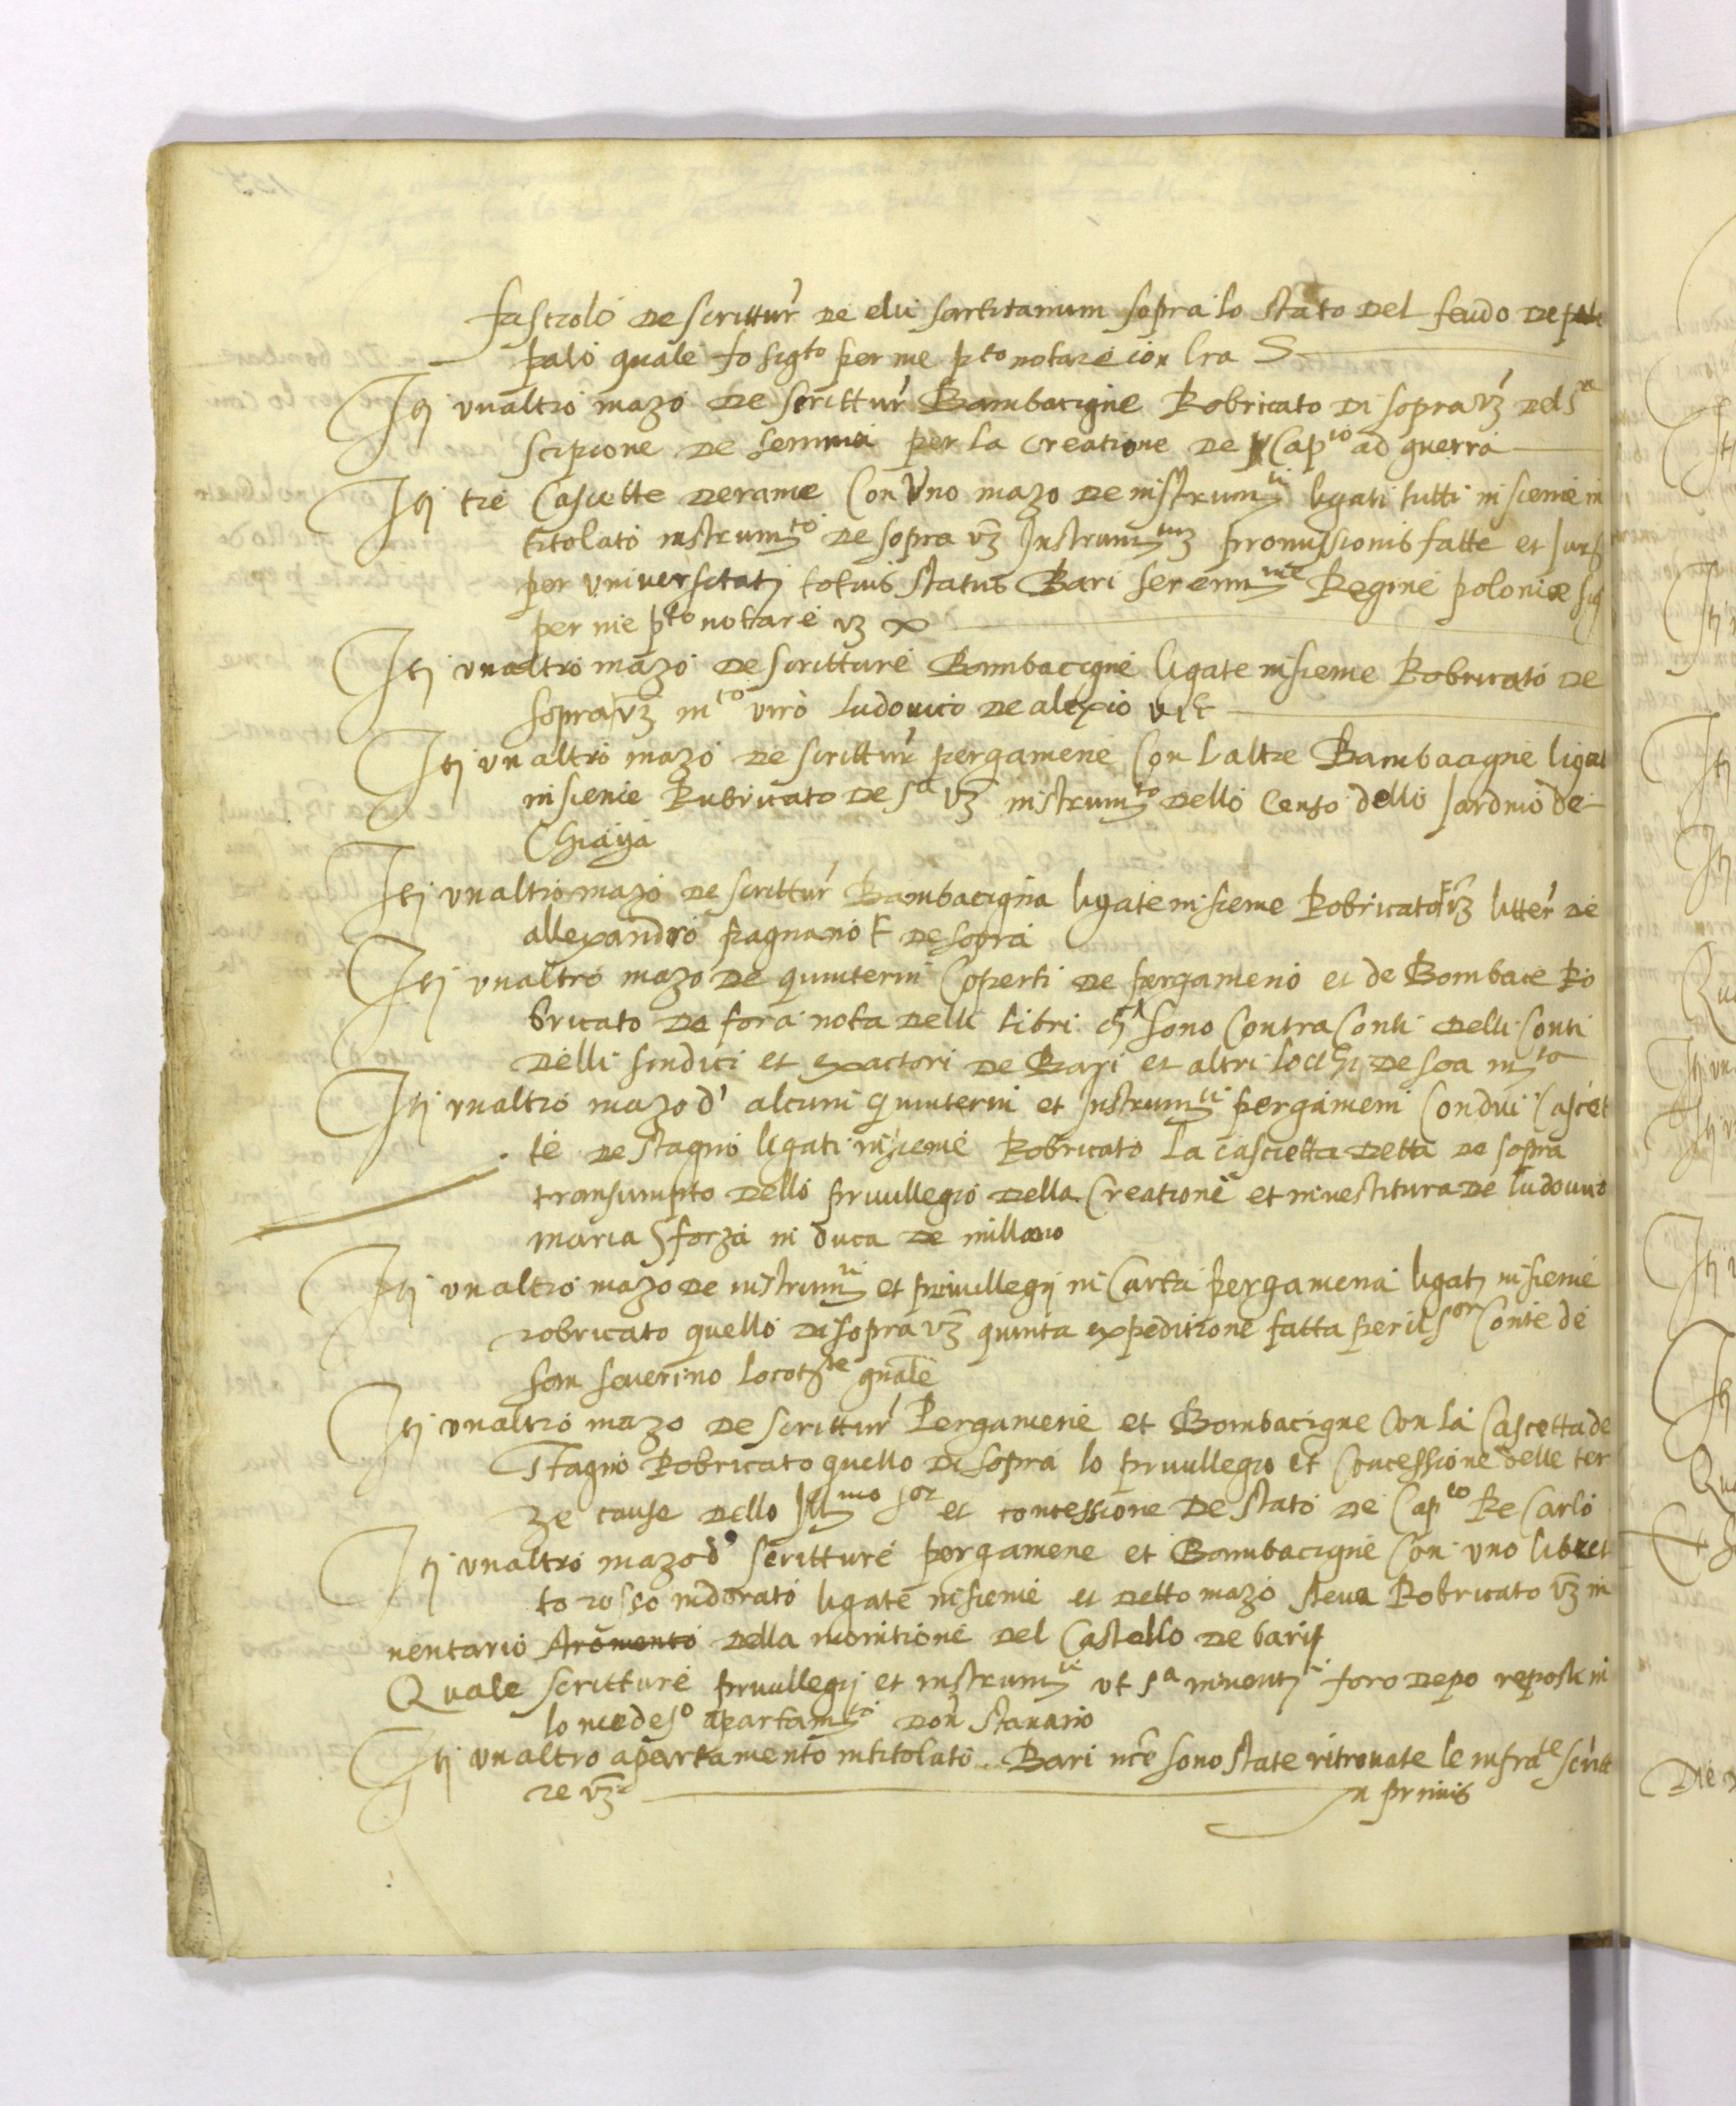 fasczolo de scrittur' de elii sartitanum sopra lo stato del feudo de
palo quale fo sig^to per me p^to notare con lra S
Itj unaltro mazo de scrittur' Bambacigne Robricato di sopra vz del S^a
scipione de semma per la creatione de Cap^to ad guerra
Itj tre Cascette de rame Con Uno mazo de instrum^ti ligati tutti insieme in
titolato instrum^to de sopra vz Instrum^tum promissionis fatte et
per universitatj totius status Bari seren^me Regine poloniæ sig
per me p^to notare vz
Itj unaltro mazo de scritture Bombacigne ligate insieme Robricato de
sopra vz m^co viro ludovico de alexio
Itj unaltro mazo de scrittur' pergamene Con laltre Bambacigne ligat
insieme Rubricato de s^a vz instrum^to dello Censo dello Jardino de
Chiaya
Itj unaltro mazo de scrittur' Bambacigna ligate insieme Robricato vz litter' de
allexandro pagnano de sopra
Itj unaltro mazo de quinterni Coperti de pergameno et de Bombace Ro
bricato da fora nota delli libri ch sono Contra Conti delli Conti
delli sindici et exactori de Bari et altri lochi de soa m^ta
Itj unaltro mazo d' alcuni quinterni et Instrum^ti pergameni Con dui Cascet
te de stagno ligati insieme Robricato la cascietta detta de sopra
transumpto dello privillegio della Creatione et investitura de ludovico
maria Sforza in duca de millano
Itj unaltro mazo de instrum^ti et privillegij in Carta pergamena ligatj insieme
robricato quello di sopra vz quinta expeditione fatta per il S^or Conte de
san severino locot^te gnale
Itj unaltro mazo de scrittur' Pergamene et Bombacigne Con la Cascetta de
Stagno Robricato quello di sopra lo privillegio et Concessione delle ter
ze cause dello Ill^mo S^or et concessione de stato de Cap^to Re Carlo
Itj unaltro mazo d' scritture pergamene et Bambacigne Con uno libret
to rosso indorato ligate insieme et detto mazo steva Robricato vz in
nentario della monitione del Castello de bari
Quale scritture privillegij et instrum^ti ut s^a inventj foro depo reposti in
lo medes^o apartam^to don stavano
Itj unaltro apartamento intitolato Bari nce sono state ritrovate le infra^te scritt
re vz In primis